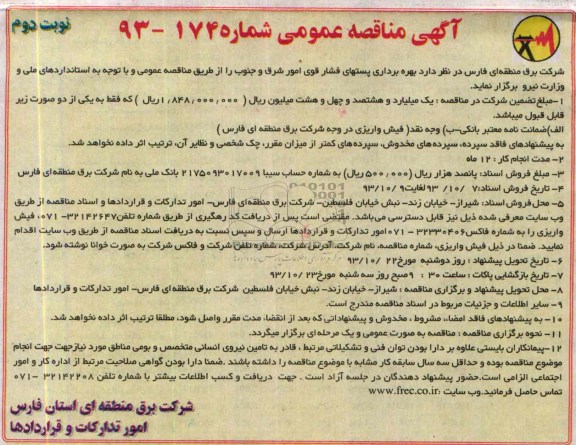 آگهی مناقصه عمومی شماره ۱۷۴ -۹۳
نوبت دوم
شرکت برق منطقه‌ای فارس در نظر دارد بهره برداری پستهای فشار قوی امور شرق و جنوب را از طریق مناقصه عمومی و با توجه به استانداردهای ملی و
وزارت نیرو برگزار نماید.
۱-مبلغ تضمین شرکت در مناقصه : یک میلیارد و هشتصد و چهل و هشت میلیون ریال ( ۱,۸۴۸,۰۰۰,۰۰۰ریال ) که فقط به یکی از دو صورت زیر
قابل قبول میباشد.
الف)ضمانت نامه معتبر بانکی-ب) وجه نقد( فیش واریزی در وجه شرکت برق منطقه ای فارس )
به پیشنهادهای فاقد سپرده، سپرده‌های مخدوش، سپرده‌های کمتر از میزان مقرر، چک شخصی و نظایر آن، ترتیب اثر داده نخواهد شد.
۲- مدت انجام کار : ۱۲ ماه
۳- مبلغ فروش اسناد: پانصد هزار ریال (۵۰۰,۰۰۰ ریال) به شماره حساب سیبا ۲۱۷۵۰۹۳۰۱۷۰۰۹ بانک ملی به نام شرکت برق منطقه‌ای فارس
۴- تاریخ فروش اسناد:۷ /۱۰/ ۹۳ لغایت۹ /۹۳/۱۰
۵- محل فروش اسناد: شیراز- خیابان زند- نبش خیابان فلسطین- شرکت برق منطقه‌ای فارس- امور تدارکات و قراردادها و اسناد مناقصه از طریق
وب سایت معرفی شده ذیل نیز قابل دسترسی می‌باشد. مقتضی است پس از دریافت کد رهگیری از طریق شماره تلفن۳۲۱۴۲۶۴۷- ۰۷۱، فیش
واریزی را به شماره فاکس۳۲۳۳۰۴۰۶ -۰۷۱امور تدارکات و قراردادها ارسال و سپس نسبت به دریافت اسناد مناقصه از طریق وب سایت اقدام
نمایید. ضمنا در ذیل فیش واریزی، شماره مناقصه، نام شرکت، آدرس شرکت، شماره تلفن شرکت و فاکس شرکت به صورت خوانا نوشته شود.
۶- تاریخ تحویل پیشنهاد : روز دوشنبه مورخ۲۲ /۹۳/۱۰
۷- تاریخ بازگشایی پاکات : ساعت ۳۰ : ۹صبح روز سه شنبه مورخ۲۳ /۹۳/۱۰
۸- محل تحویل پیشنهاد و برگزاری مناقصه : شیراز- خیابان زند- نبش خیابان فلسطین شرکت برق منطقه ای فارس- امور تدارکات و قراردادها
۹- سایر اطلاعات و جزئیات مربوط در اسناد مناقصه مندرج است.
۱۰- به پیشنهادهای فاقد امضاء، مشروط ، مخدوش و پیشنهاداتی که بعد از انقضاء مدت مقرر واصل شود، مطلقا ترتیب اثر داده نخواهد شد.
۱۱- نحوه برگزاری مناقصه : مناقصه به صورت عمومی و یک مرحله ای برگزار میگردد.
۱۲-پیمانکاران بایستی علاوه بر دارا بودن توان فنی و تشکیلاتی مرتبط ، قادر به تامین نیروی انسانی متخصص و بومی مناطق مورد نیازجهت جهت انجام
موضوع مناقصه بوده و حداقل سه سال سابقه کار مشابه با موضوع مناقصه را داشته باشند .ضمنا دارا بودن گواهی صلاحیت مرتبط از اداره کار و امور
اجتماعی الزامی است.حضور پیشنهاد دهندگان در جلسه آزاد است . جهت دریافت و کسب اطلاعات بیشتر با شماره تلفن ۳۲۱۴۲۲۰۸ -۰۷۱
تماس حاصل فرمایید.وب سایت :www.frec.co.ir
شرکت برق منطقه ای استان فارس
امور تدارکات و قراردادها